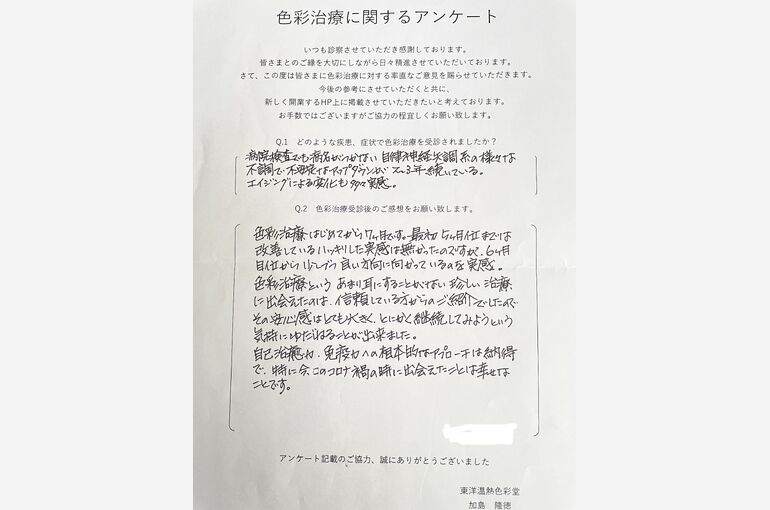 色彩治療に関するアンケート
いつも診察させていただき感謝しております。
皆さまとのご縁を大切にしながら日々精進させていただいております。
さて、この度は皆さまに色彩治療に対する率直なご意見を賜らせていただきます。
今後の参考にさせていただくと共に、
新しく開業するHP上に掲載させていただきたいと考えております。
お手数ではございますがご協力の程宜しくお願い致します。
Q.1 どのような疾患、症状で色彩治療を受診されましたか？
病院検査でも病名がつかない自律神経失調系の様々な
不調で不安定なアップダウンが2、3年続いている。
エイジングによる変化も多々実感。
Q.2 色彩治療受診後のご感想をお願い致します。
色彩治療はじめてから7ヶ月です。最初5ヶ月位までは
改善しているハッキリした実感は無かったのですが、6ヶ月
目位から少しづつ良い方向に向かっているのを実感。
色彩治療という あまり耳にすることがない珍しい治療
に出会えたのは、信頼している方からのご紹介でしたので
その安心感はとても大きく、とにかく継続してみようという
気持にゆだねることが出来ました。
自己治癒力、免疫力への根本的なアプローチは納得
で、特に今このコロナ禍の時に出会えたことは幸せな
ことです。
アンケート記載のご協力、誠にありがとうございました
東洋温熱色彩堂
加島 隆徳